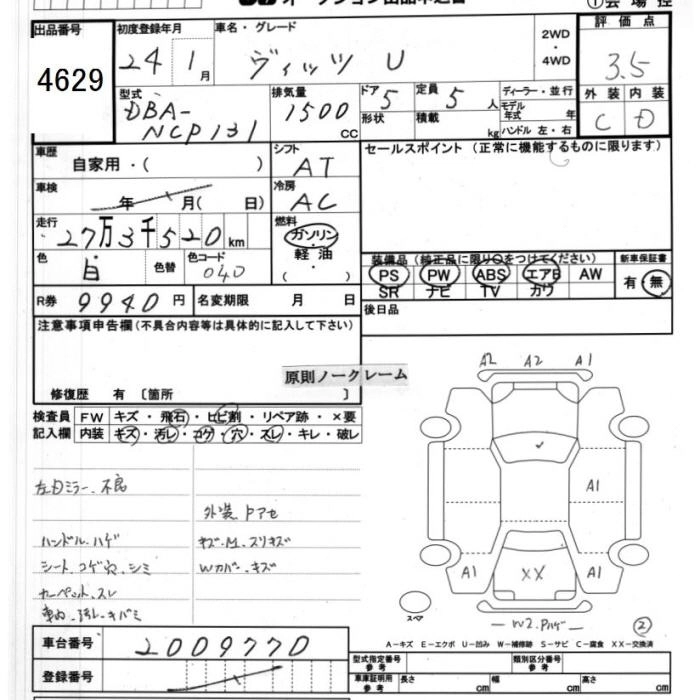 オークション出品申込書
①会場控
出品番号
4629
初度登録年月
24 1月
車名・グレード
ヴィッツ U
2WD
・
4WD
評価点
3.5
外装 内装
C D
型式
DBA-
NCP131
排気量
1500 cc
ドア 5
形状
定員 5 人
積載 kg
ディーラー・並行
モデル
年式 年
ハンドル 左・右
車歴
自家用・( )
シフト
AT
セールスポイント (正常に機能するものに限ります)
車検
年 月( 日)
冷房
AC
走行
27万3千520km
燃料
ガソリン
・
軽油
( )
色
白
色替
色コード
040
装備品 (純正品に限り○をつけてください)
PS PW ABS エアB AW
SR ナビ TV カワ
新車保証書
有・無
R券 9940円
名変期限 月 日
後日品
注意事項申告欄 (不具合内容等は具体的に記入して下さい)
原則ノークレーム
修復歴 有 〔箇所 〕
検査員
記入欄
FW キズ・飛石・ヒビ割・リペア跡・×要
内装 キズ・汚レ・コゲ・穴・スレ・キレ・破レ
左ドミラー、不良
外装 Pアセ
ハンドル、ハゲ
キズ、M、スリキズ
シート、コゲ穴、シミ
Wカバー、キズ
カーペット、スレ
車内、汚レ、キバミ
A2 A2 A1
A1
A1 XX A1
W2、Pハゲ
②
スペア
A-キズ E-エクボ U-凹み W-補修跡 S-サビ C-腐食 XX-交換済
車台番号
2009770
登録番号
型式指定番号
参考
類別区分番号
参考
車庫証明用
参考
長さ cm 幅 cm 高さ cm